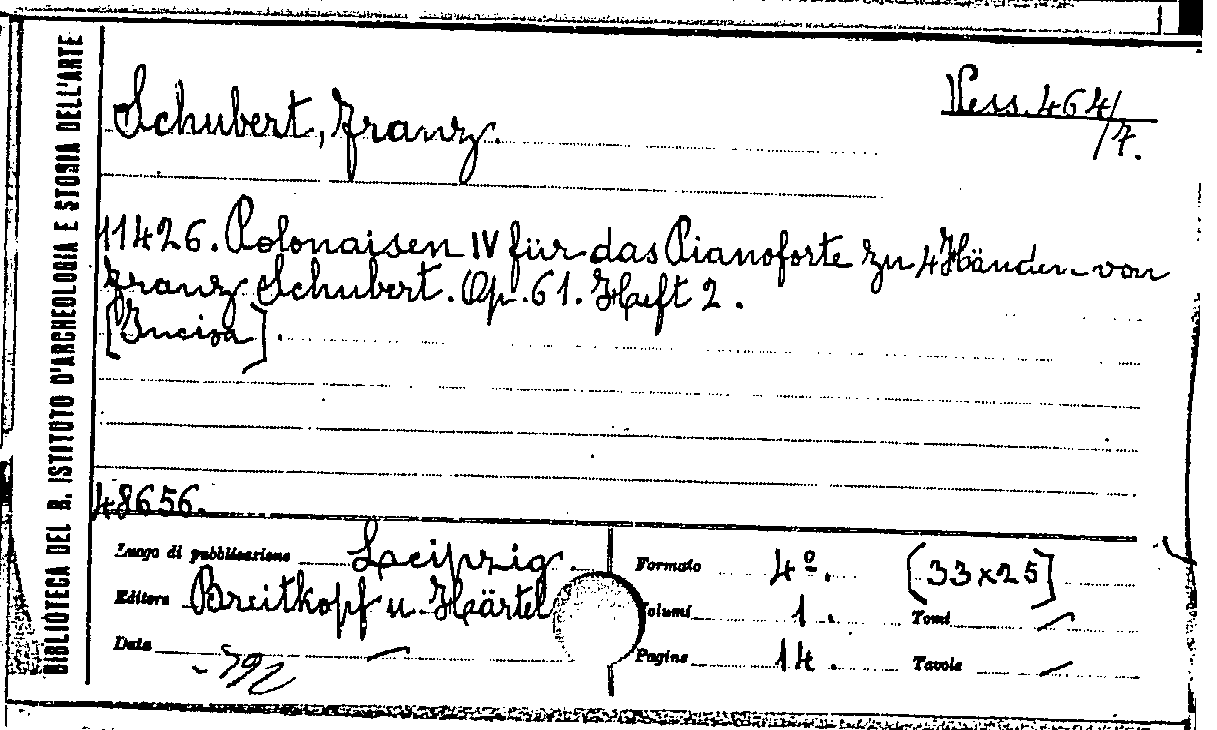 BIBLIOTECA DEL R. ISTITUTO D'ARCHEOLOGIA E STORIA DELL'ARTE
Vess. 464/
/7.
Schubert, Franz.
11426. Polonaisen IV für das Pianoforte zu 4 Händen von
Franz Schubert. Op. 61. Heft 2.
[Incisa].
48656.
Luogo di pubblicazione Leipzig.
Editore Breitkopf u. Härtel
Data —
Formato 4º. [33x25]
Volumi 1. Tomi —
Pagine 14. Tavole —